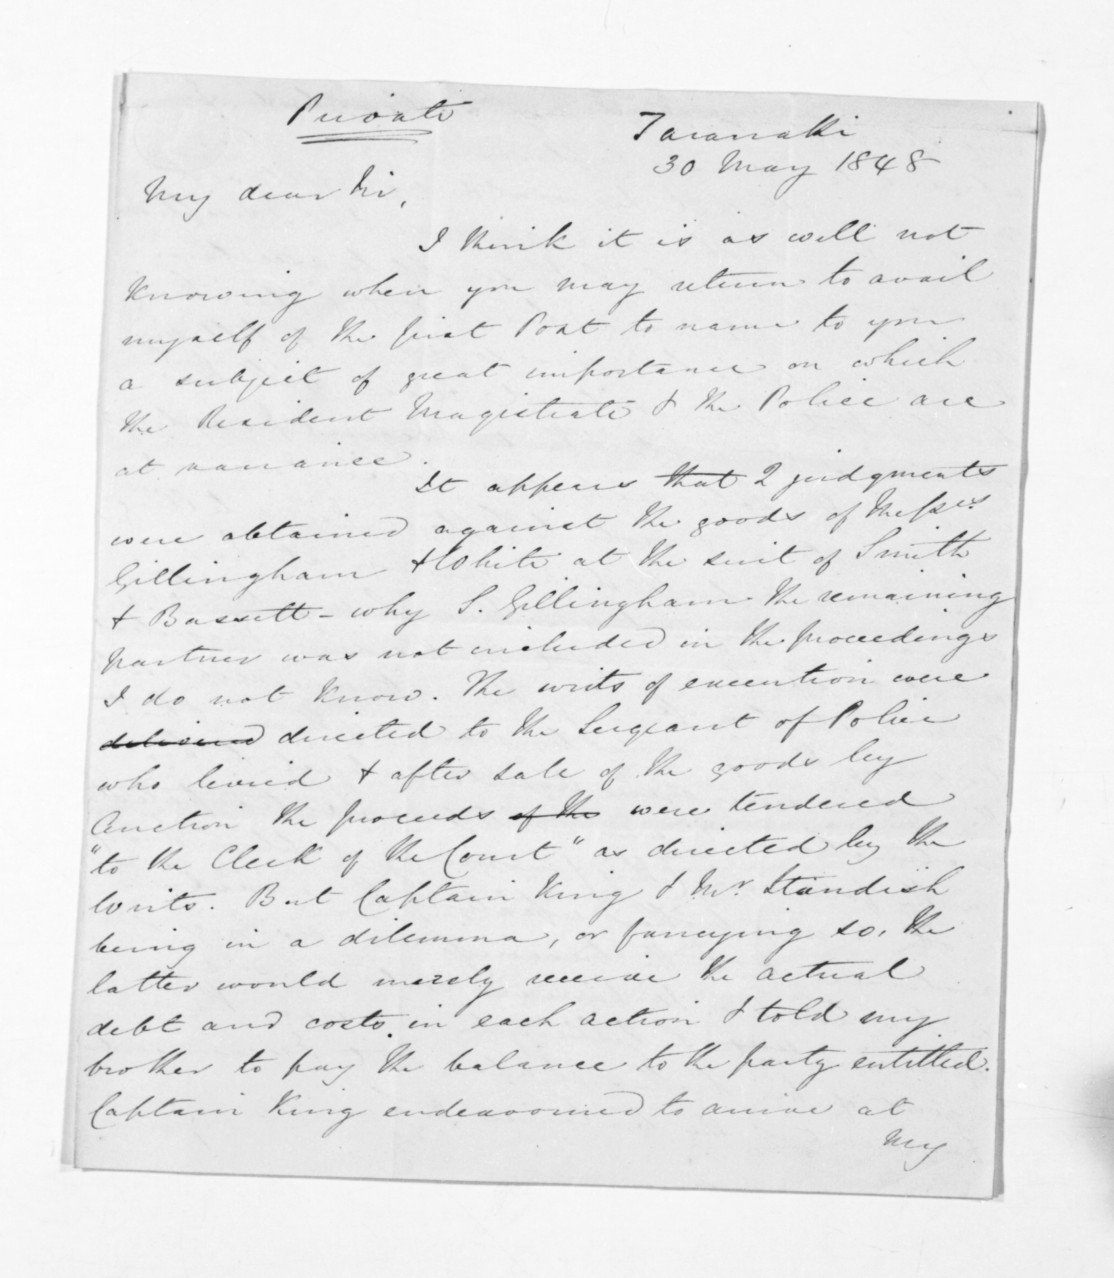 Private
Taranaki
30 May 1848
My dear Sir,
I think it is as well not
knowing when you may return to avail
myself of the first Post to name to you
a subject of great importance on which
the Resident Magistrate & the Police are
at variance.
It appears that 2 judgments
were obtained against the goods of Messrs.
Gillingham & White at the suit of Smith
& Bassett - why S. Gillingham the remaining
partner was not included in the proceedings
I do not know. The writs of execution were
delivered directed to the Sergeant of Police
who levied & after sale of the goods by
Auction the proceeds of the were tendered
"to the Clerk of the Court" as directed by the
writs. But Captain King & Mr. Standish
being in a dilemma, or fancying so, the
latter would merely receive the actual
debt and costs in each action I told my
brother to pay the balance to the party entitled.
Captain King endeavoured to arrive at
my